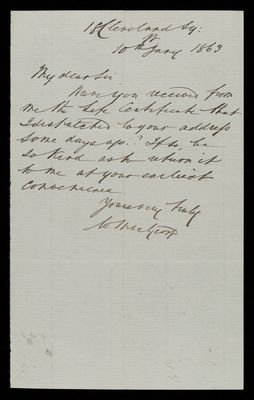 18 Cleveland Sq:
10th Jany 1863
My dear Sir
Have you received from
me the Life Certificate that
I despatched to your address
some days ago? If so, be
so kind as to return it
to me at your earliest
convenience
Yours very truly